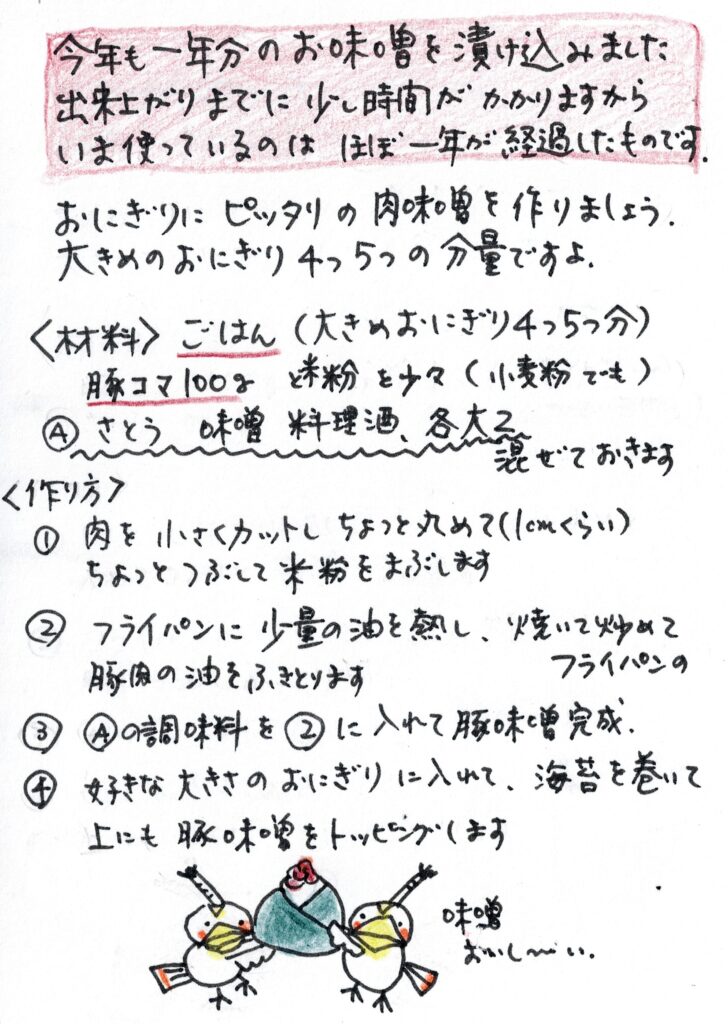 今年も一年分のお味噌を漬け込みました
出来上がりまでに少し時間がかかりますから
いま使っているのは ほぼ一年が経過したものです.
おにぎりに ピッタリの 肉味噌を作りましょう.
大きめのおにぎり4つ5つの分量ですよ.
〈材料〉 ごはん (大きめおにぎり4つ5つ分)
豚コマ100g 米粉を少々 (小麦粉でも)
Ⓐ さとう 味噌 料理酒、各大2
混ぜておきます
〈作り方〉
① 肉を小さくカットし ちょっと丸めて(1cmくらい)
ちょっとつぶして米粉をまぶします
② フライパンに 少量の油を熱し、焼いて炒めて
フライパンの
豚肉の油をふきとります
③ Ⓐの調味料を②に入れて豚味噌完成.
④ 好きな大きさのおにぎりに入れて、海苔を巻いて
上にも 豚味噌をトッピングします
味噌
おいし〜い.